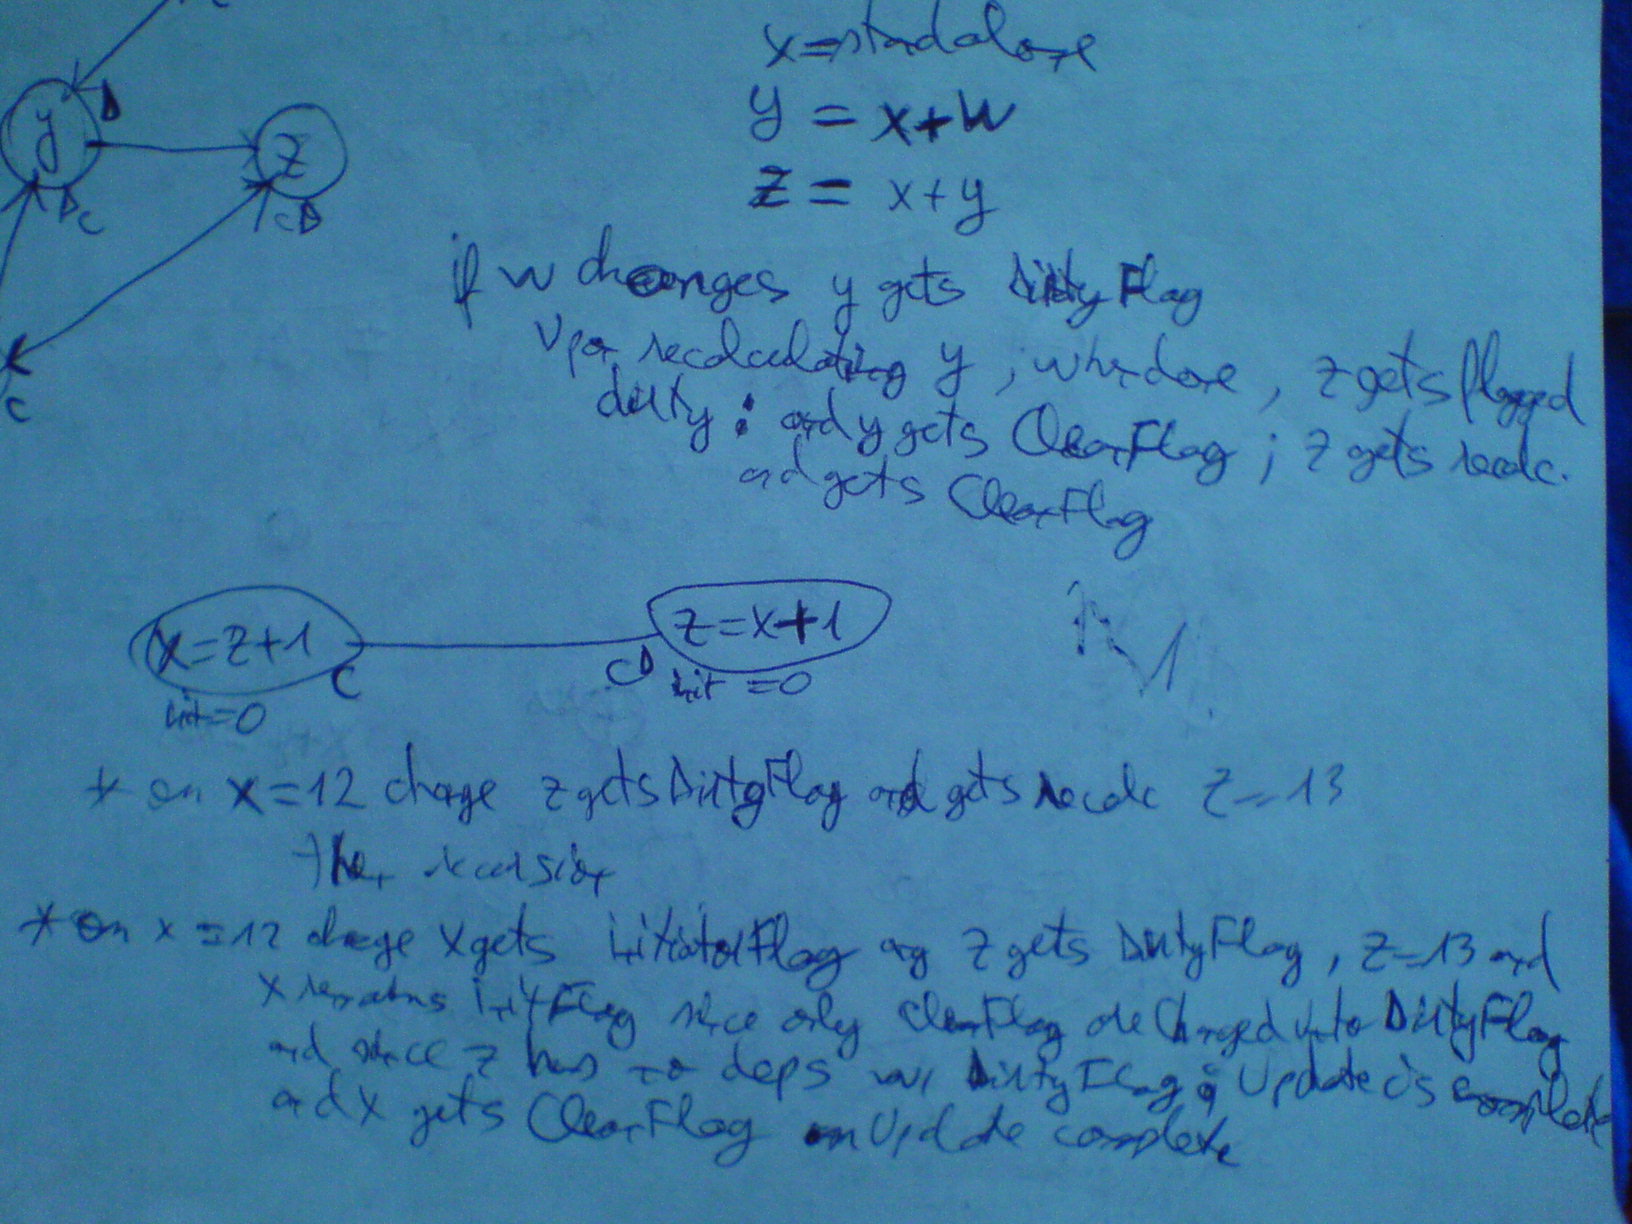 x=standalone
y = x+w
z = x+y
y D
z
D C
C D
if w changes y gets DirtyFlag
Upon recalculating y ; when done , z gets flagged
C
dirty ; and y gets CleanFlag ; z gets recalc.
and gets CleanFlag
x=z+1
z=x+1
C
C D
init=0
init =0
* on x=12 change z gets DirtyFlag and gets recalc z=13
then recursion
* on x=12 change x gets InitiatorFlag z gets DirtyFlag , z=13 and
x remains InitFlag since only CleanFlag are changed into DirtyFlag
and since z has no deps w/ DirtyFlag ; Update is complete
and x gets CleanFlag on Update complete